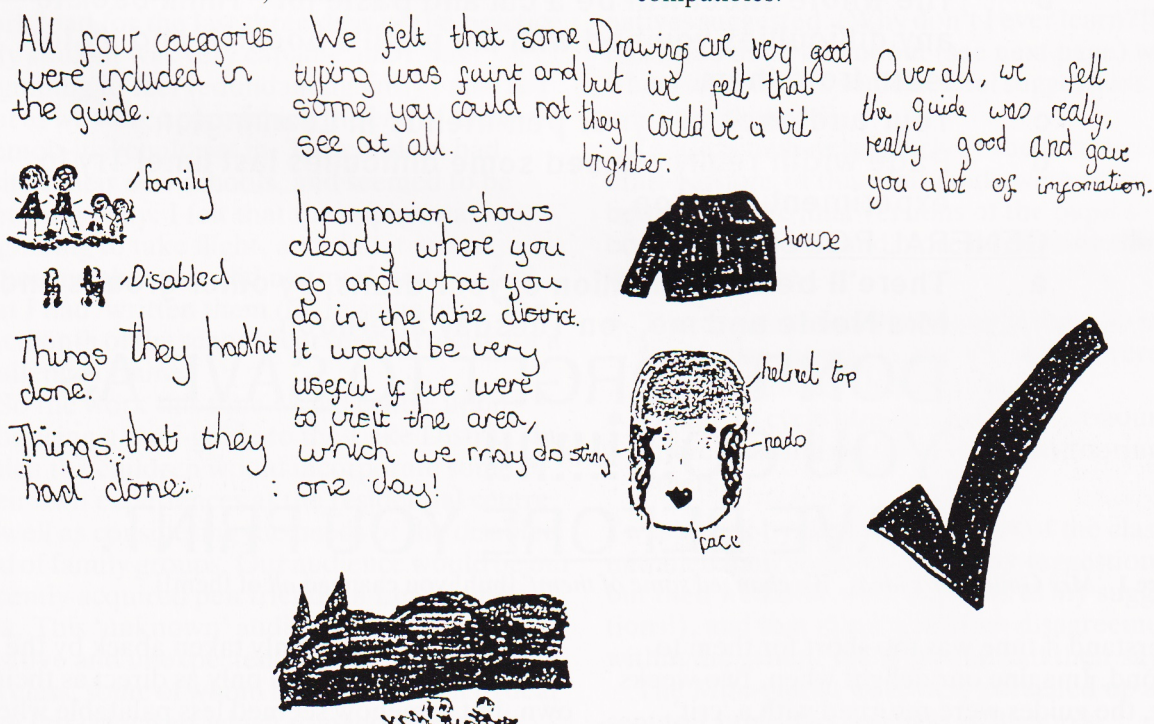 All four categories
were included in
the guide.
family
Disabled
Things they hadn't
done.
Things that they
had done.
We felt that some
typing was faint and
some you could not
see at all.
Information shows
clearly where you
go and what you
do in the lake district.
It would be very
useful if we were
to visit the area,
which we may do
one day!
Drawings are very good
but we felt that
they could be a bit
brighter.
house
helmet top
string
face
Over all, we felt
the guide was really,
really good and gave
you alot of infomation.